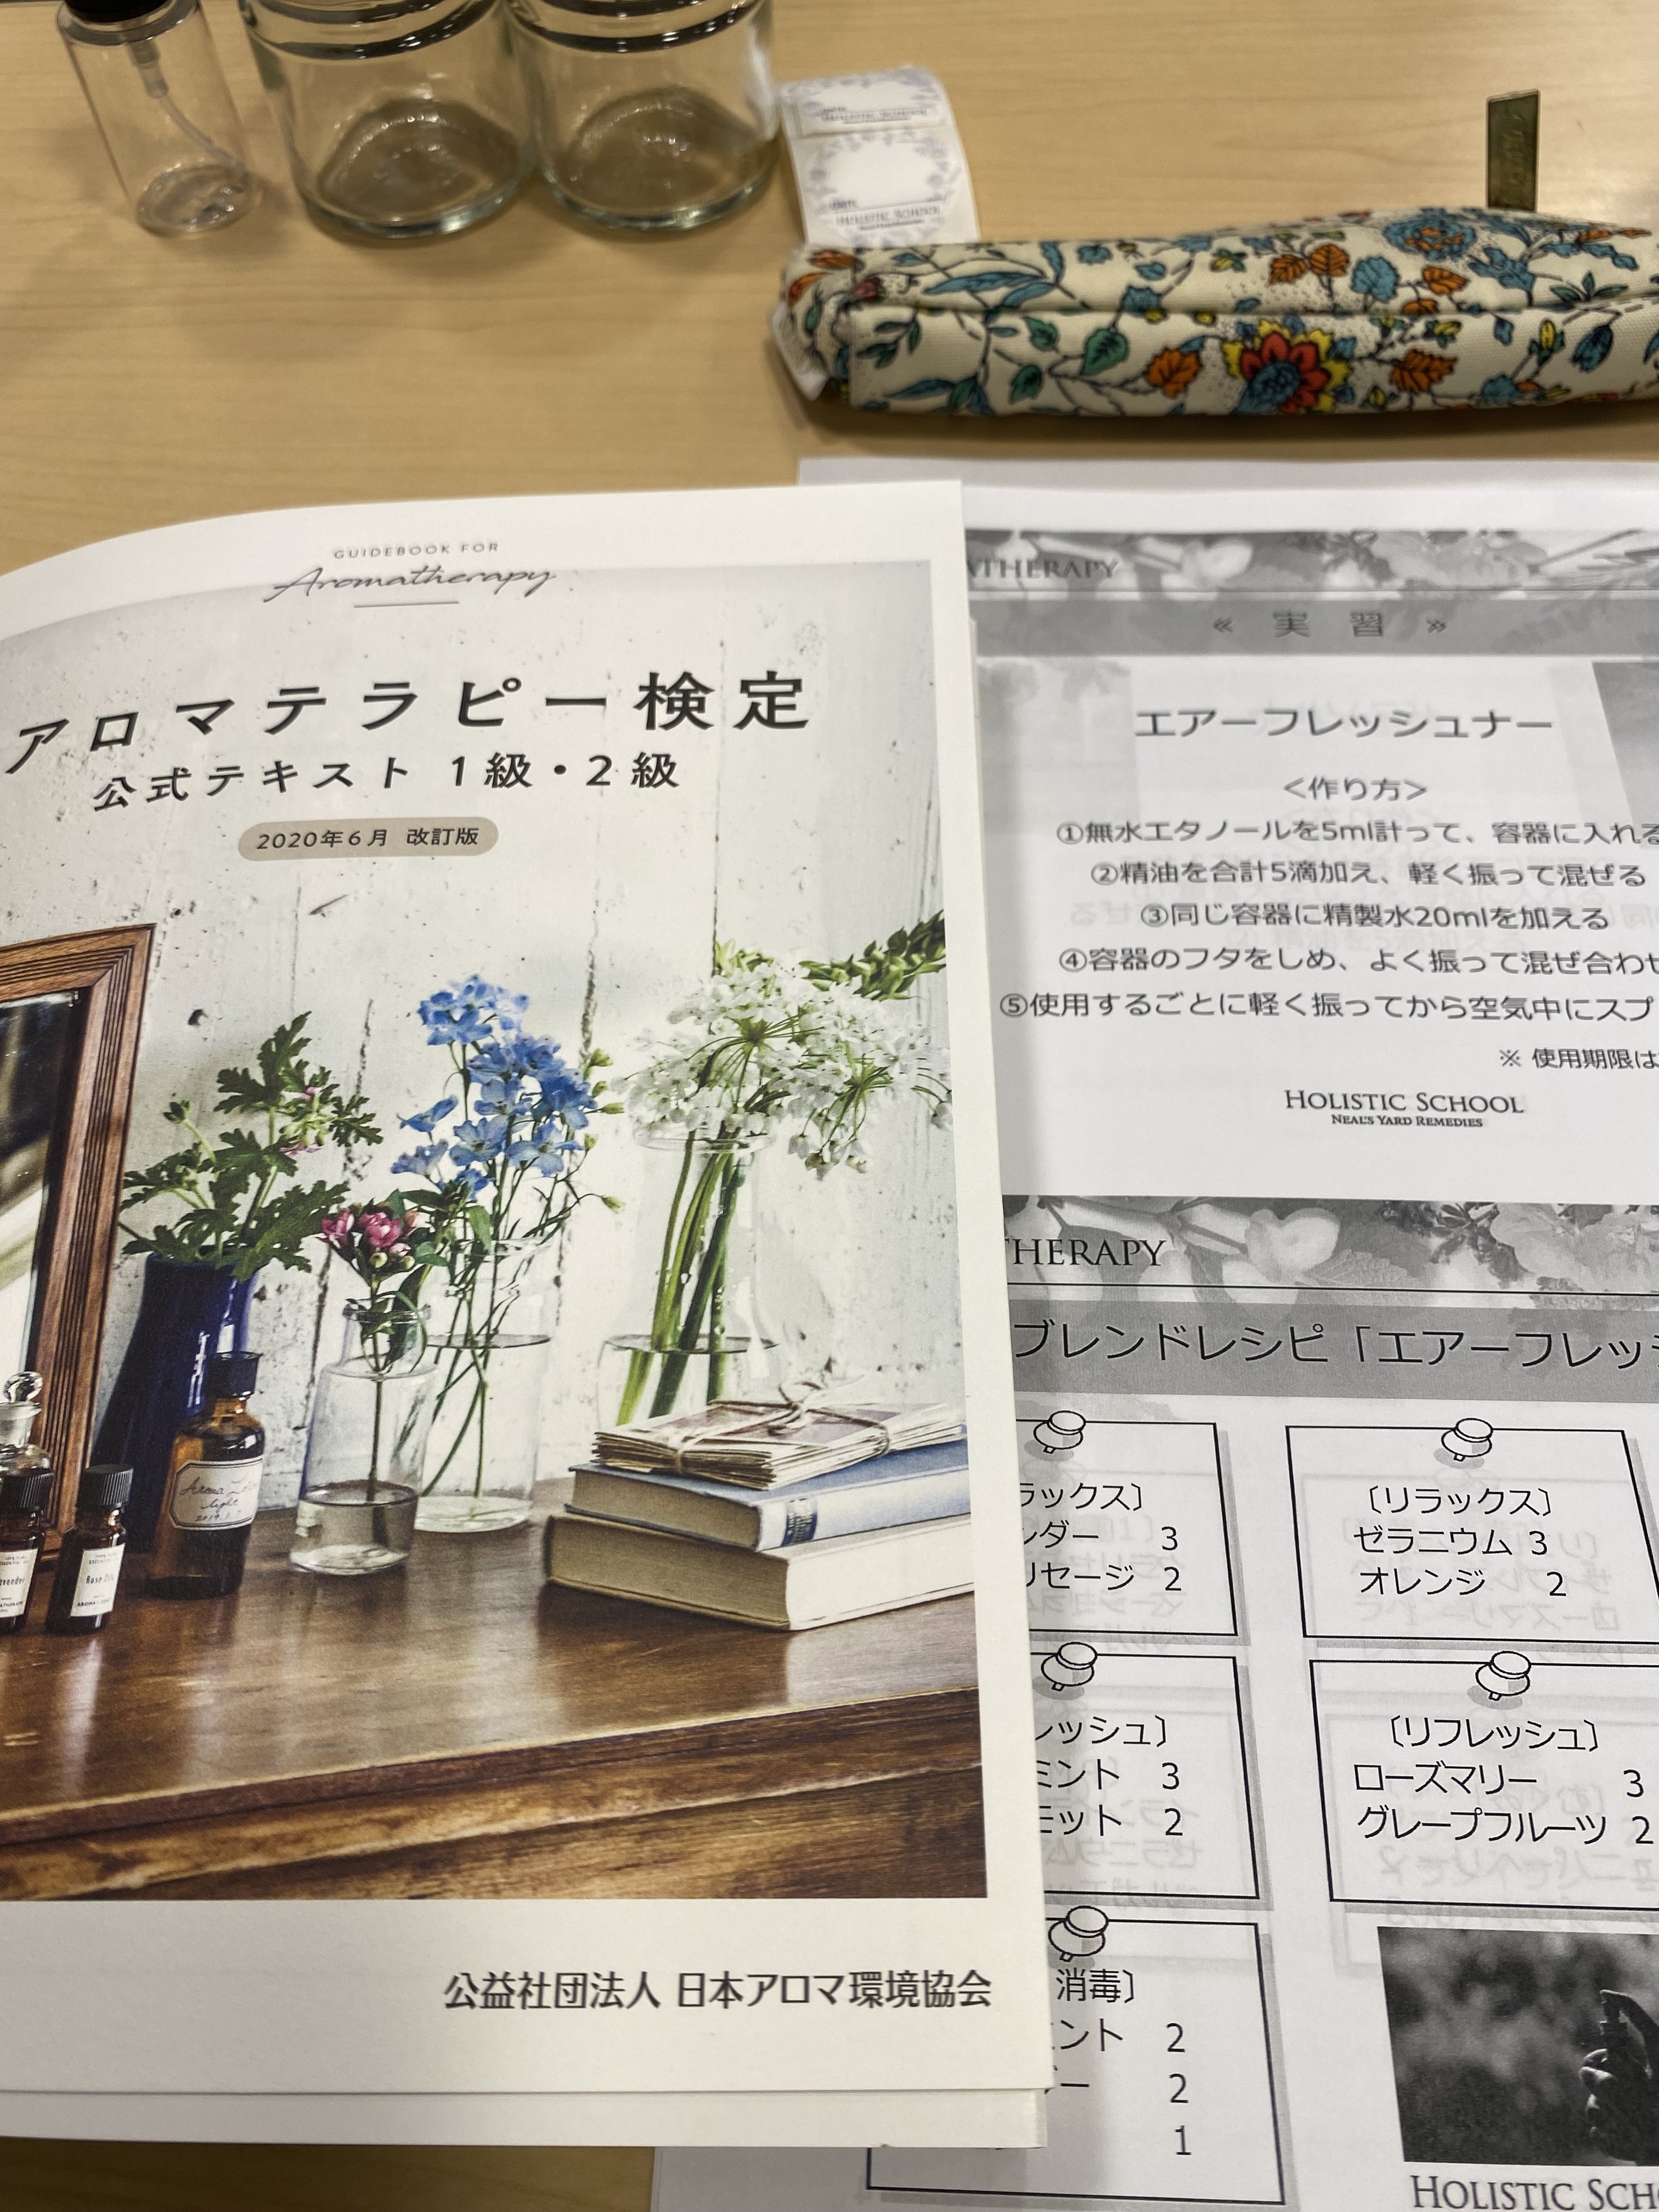 GUIDEBOOK FOR
Aromatherapy
アロマテラピー検定
公式テキスト 1級・2級
2020年6月 改訂版
公益社団法人 日本アロマ環境協会
ATHERAPY
≪ 実 習 ≫
エアーフレッシュナー
<作り方>
①無水エタノールを5ml計って、容器に入れる
②精油を合計5滴加え、軽く振って混ぜる
③同じ容器に精製水20mlを加える
④容器のフタをしめ、よく振って混ぜ合わせ
⑤使用するごとに軽く振ってから空気中にスプ
※ 使用期限は
HOLISTIC SCHOOL
NEAL'S YARD REMEDIES
THERAPY
ブレンドレシピ「エアーフレッシ
ラックス〕
ンダー 3
リセージ 2
〔リラックス〕
ゼラニウム 3
オレンジ 2
レッシュ〕
ミント 3
モット 2
〔リフレッシュ〕
ローズマリー 3
グレープフルーツ 2
消毒〕
ント 2
ー 2
1
HOLISTIC SCHO